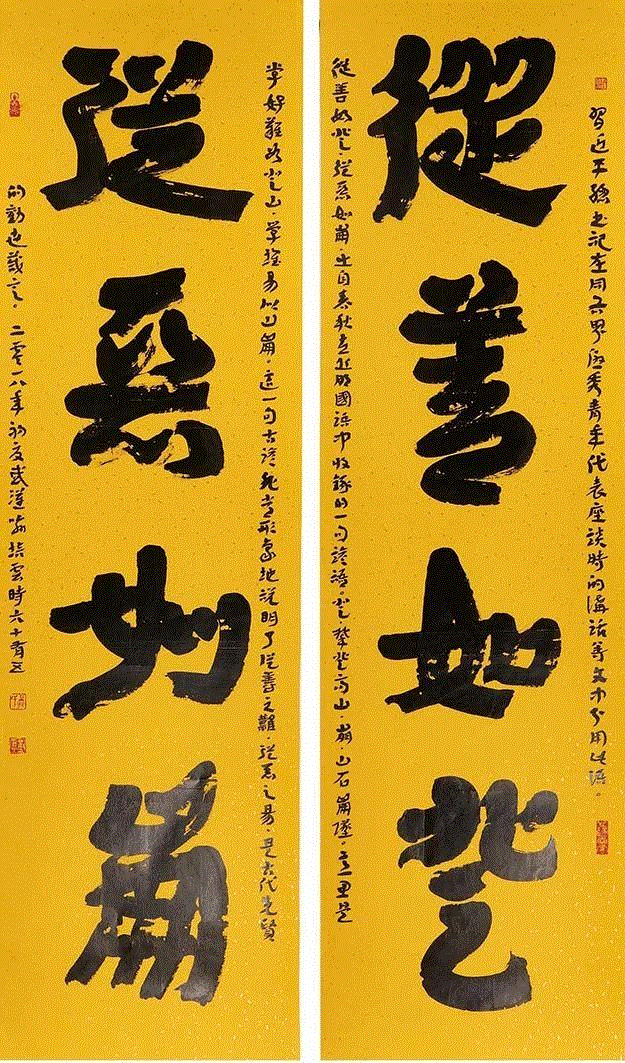 從善如登
從惡如崩
從善如登，從惡如崩，出自春秋左丘明國語中收錄的一句諺語。登，攀登高山。崩，山石崩墜。意思是
学好難如登山，学壞易似山崩。這一句古諺非常形象地说明了從善之難，從惡之易，是古代先賢
的勸世箴言。二零一八年初夏 培雲時六十有五
習近平總書記在同各界優秀青年代表座談時的講話等文中引用此語。